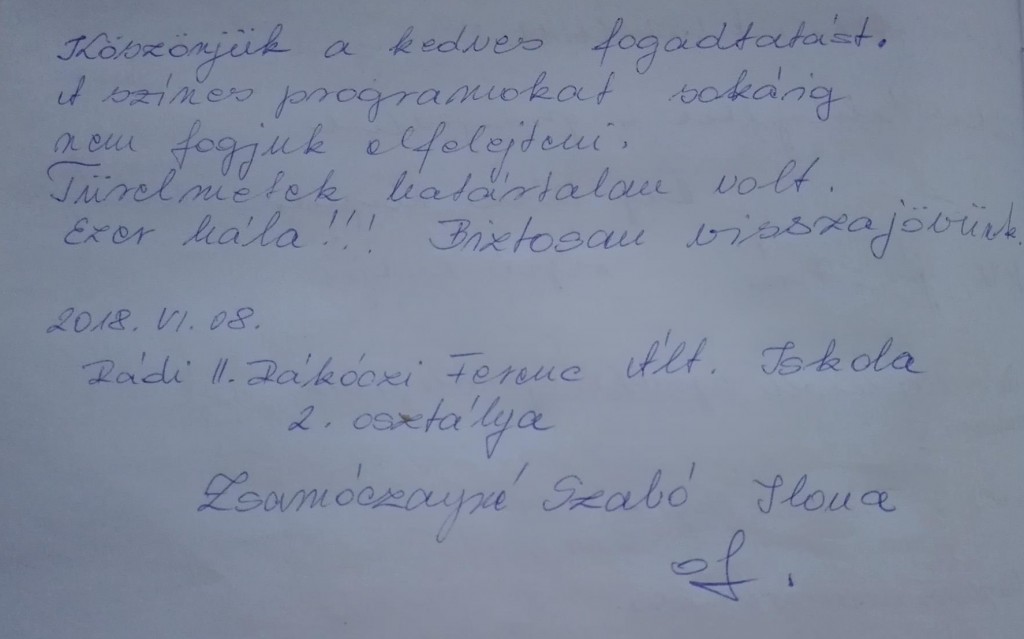 Köszönjük a kedves fogadtatást.
A színes programokat sokáig
nem fogjuk elfelejteni.
Türelmetek határtalan volt.
Ezer hála!!! Biztosan visszajövünk.
2018. VI. 08.
Rádi II. Rákóczi Ferenc Ált. Iskola
2. osztálya
Zsamóczayné Szabó Ilona
of.